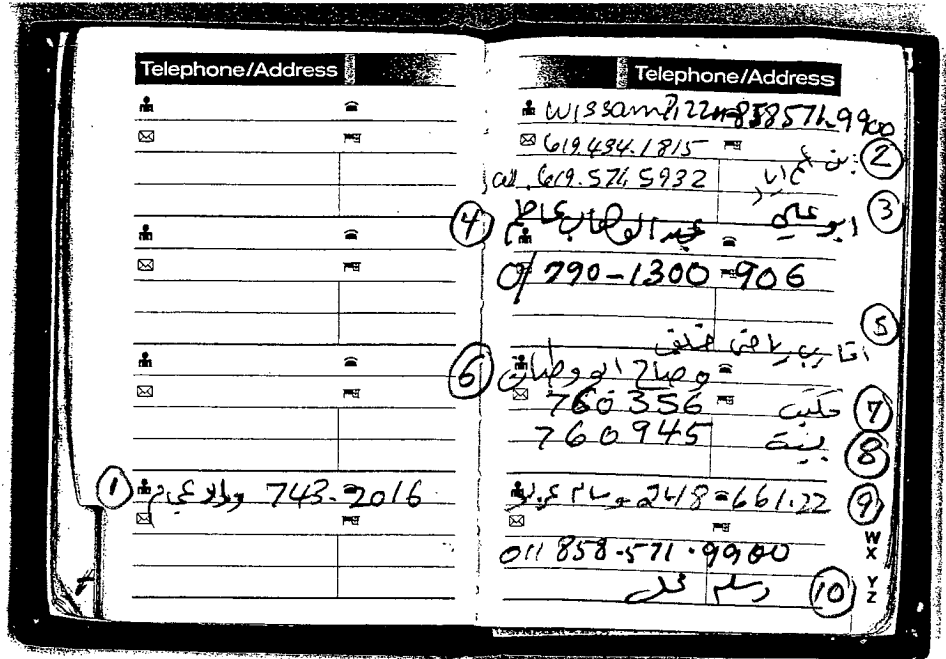 Telephone/Address
① 743-2016
Telephone/Address
Wissam Pizza 858 571-9900
619.434.1815
② بن عم اياد
cell. 619.574 5932
③ ابو علي
④ عبد الوهاب كاظم
01 790-1300-906
⑤ اقارب راضي
⑥ وضاح ابو وضاح
760356 مكتب ⑦
760945 بيت ⑧
248-661.22 وسام ⑨
011 858-571-9900
⑩ وسام محل
W
X
Y
Z